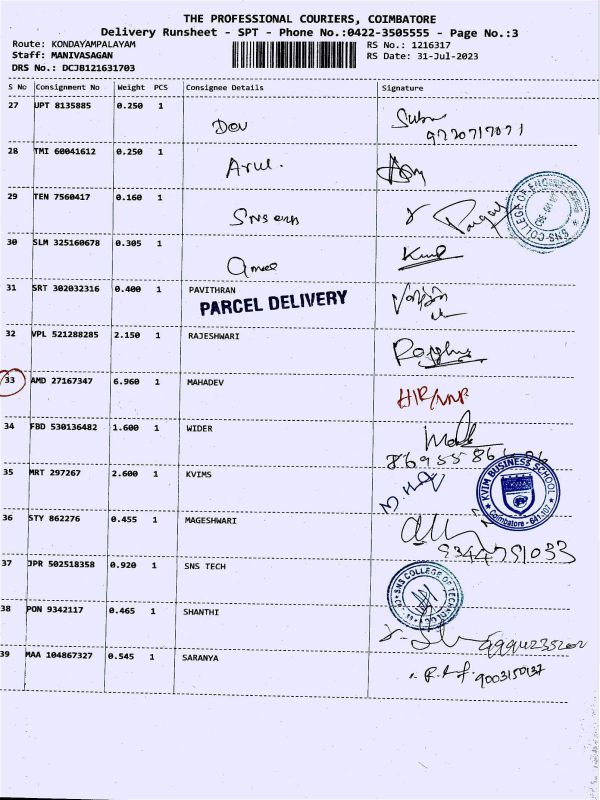 THE PROFESSIONAL COURIERS, COIMBATORE
Delivery Runsheet - SPT - Phone No.:0422-3505555 - Page No.:3
Route: KONDAYAMPALAYAM
RS No.: 1216317
Staff: MANIVASAGAN
RS Date: 31-Jul-2023
DRS No.: DCJB121631703
S No Consignment No Weight PCS Consignee Details Signature
27 UPT 8135885 0.250 1
28 TMI 60041612 0.250 1
Arul.
29 TEN 7560417 0.160 1
SNS COLLEGE OF ENGINEERING
30 SLM 325160678 0.305 1
31 SRT 302032316 0.400 1 PAVITHRAN
PARCEL DELIVERY
32 VPL 521288285 2.150 1 RAJESHWARI
33 AMD 27167347 6.960 1 MAHADEV
34 FBD 530136482 1.600 1 WIDER
35 MRT 297267 2.600 1 KVIMS
KVIM BUSINESS SCHOOL
Coimbatore - 641 107
36 STY 862276 0.455 1 MAGESHWARI
9344791033
37 JPR 502518358 0.920 1 SNS TECH
SNS COLLEGE OF TECHNOLOGY
38 PON 9342117 0.465 1 SHANTHI
39 MAA 104867327 0.545 1 SARANYA
9003150137